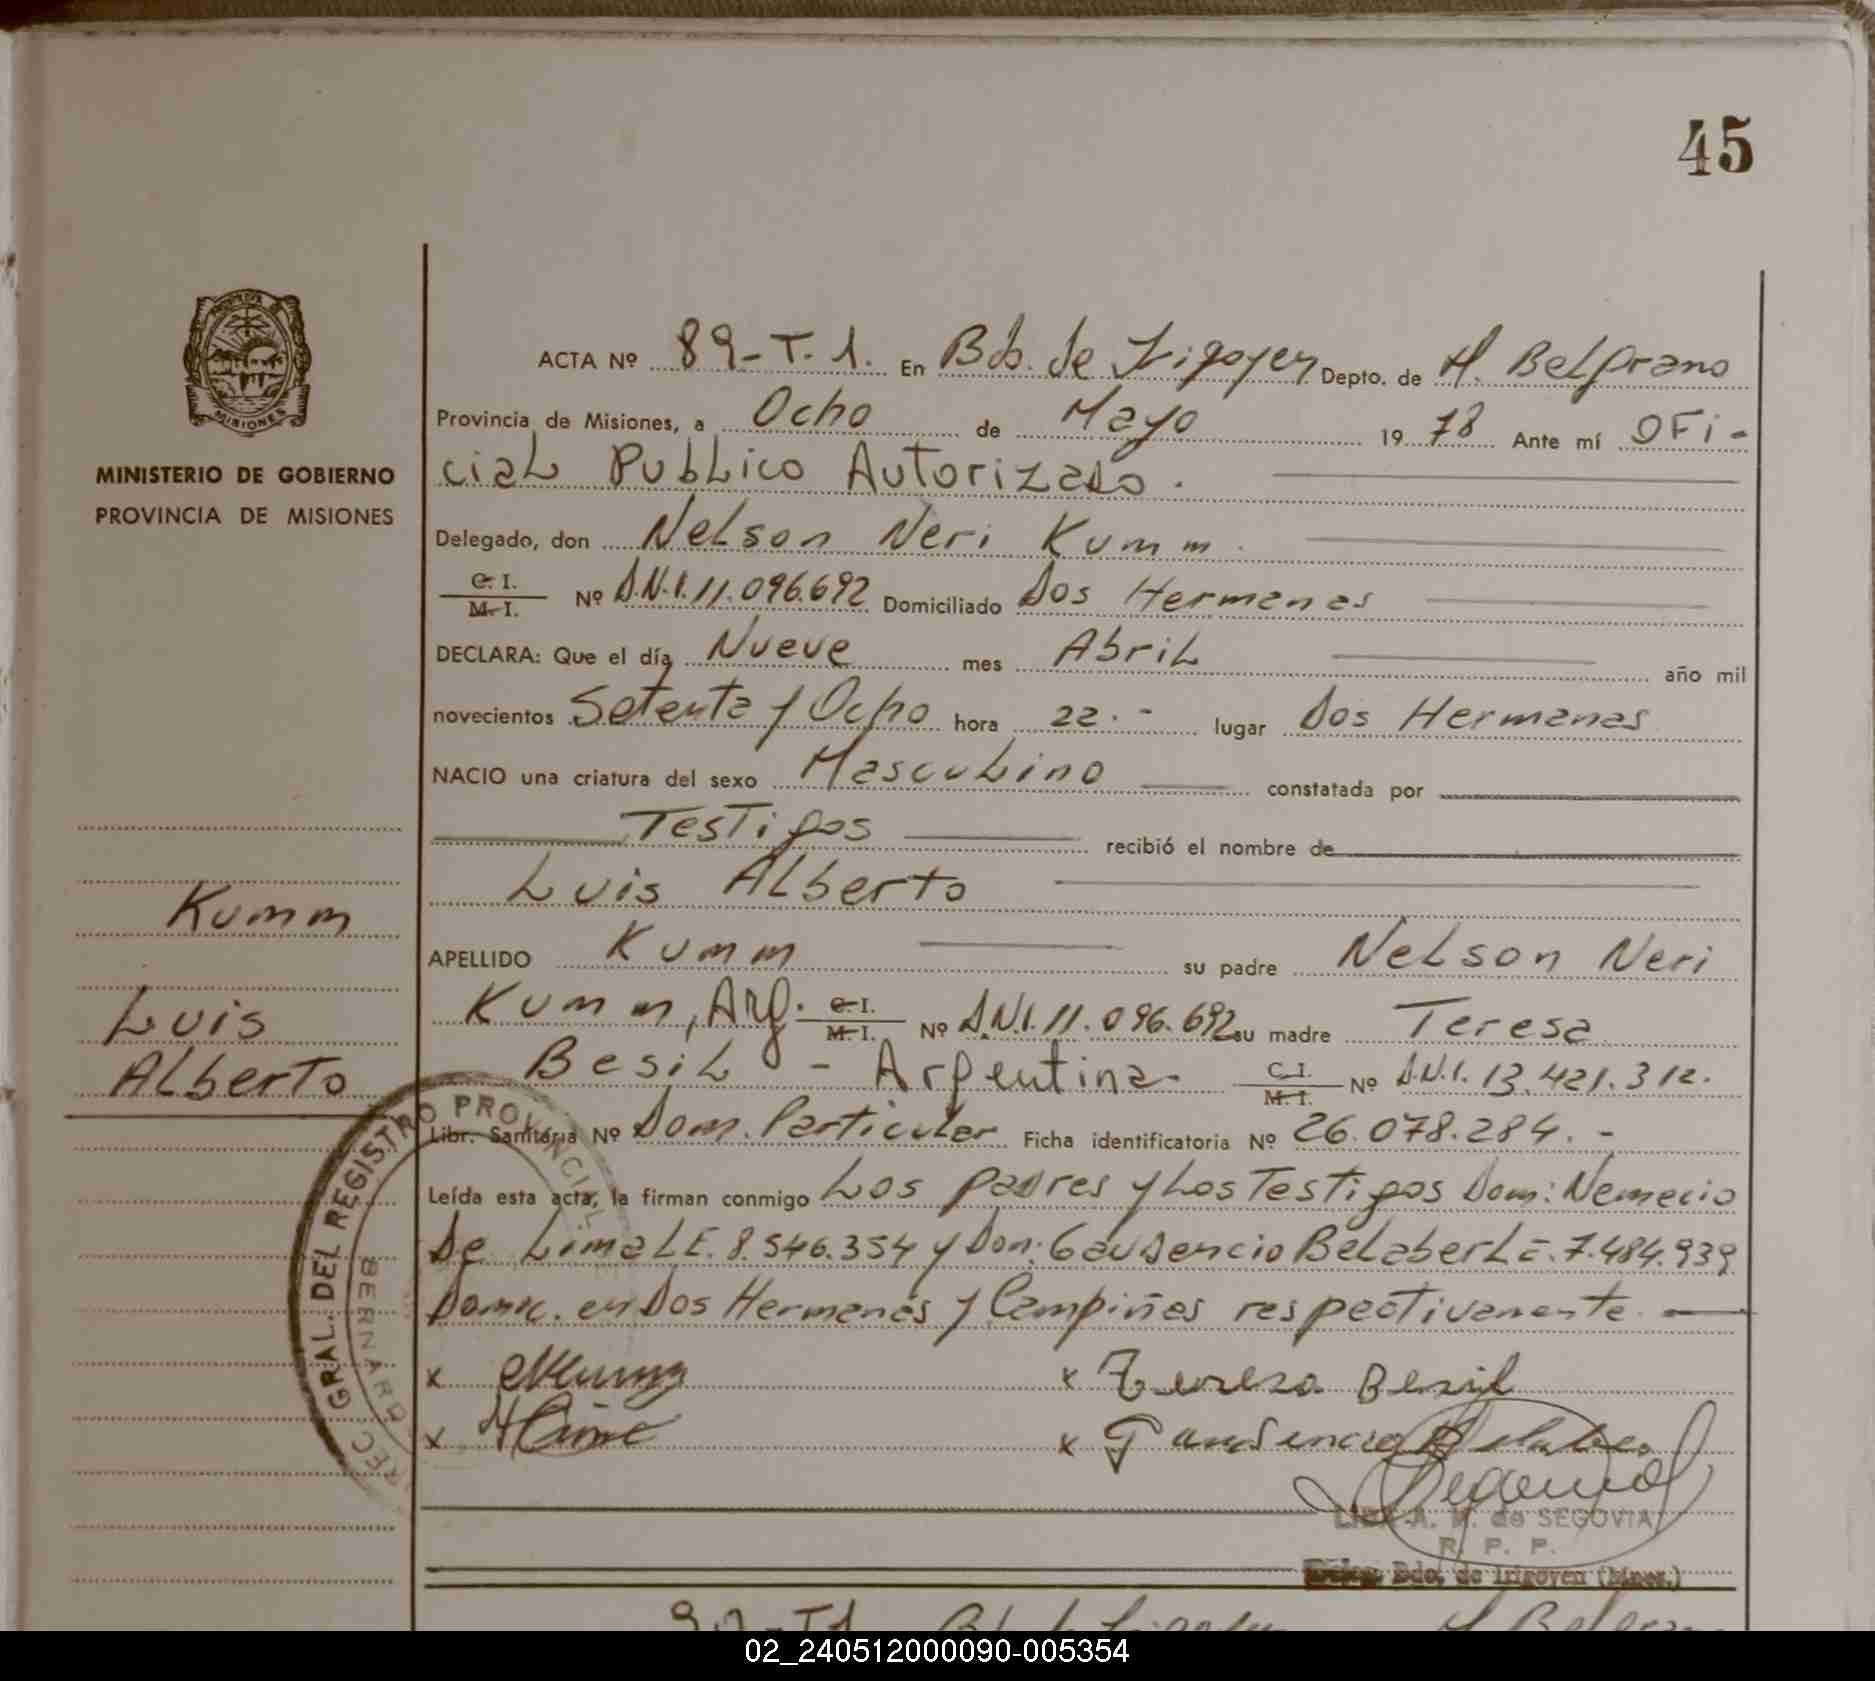 45
MISIONES
MINISTERIO DE GOBIERNO
PROVINCIA DE MISIONES
Kumm
Luis
Alberto
ACTA Nº 89-T.1. En Bdo. de Irigoyen Depto. de M. Belgrano
Provincia de Misiones, a Ocho de Mayo 1978 Ante mí OFi-
ciaL PubLico Autorizado.
Delegado, don NeLson Neri Kumm.
C. I. / M. I. Nº D.N.I. 11.096.692 Domiciliado Dos Hermanas
DECLARA: Que el día Nueve mes AbriL año mil
novecientos Setenta y Ocho hora 22.- lugar Dos Hermanas
NACIO una criatura del sexo MascuLino constatada por
Testigos recibió el nombre de
Luis ALberto
APELLIDO Kumm su padre NeLson Neri
Kumm, Arg. C. I. / M. I. Nº D.N.I. 11.096.692 su madre Teresa
BesiL - Argentina. C. I. / M. I. Nº D.N.I. 13.421.312.
Libr. Sanitaria Nº Dom. Particular Ficha identificatoria Nº 26.078.284.-
Leída esta acta, la firman conmigo Los padres y Los Testigos Dom: Nemecio
De Lima L.E. 8.546.354 y Don: Gaudencio BeLaber L.E. 7.484.939
Domic. en Dos Hermanas y Campiñas respectivamente.
x
x Teresa Besil
x
x Gaudencio
REC. GRAL. DEL REGISTRO PROVINCIAL
BERNARDO
A. M. de SEGOVIA
R. P. P.
Bdo. de Irigoyen (Mnes.)
02_240512000090-005354